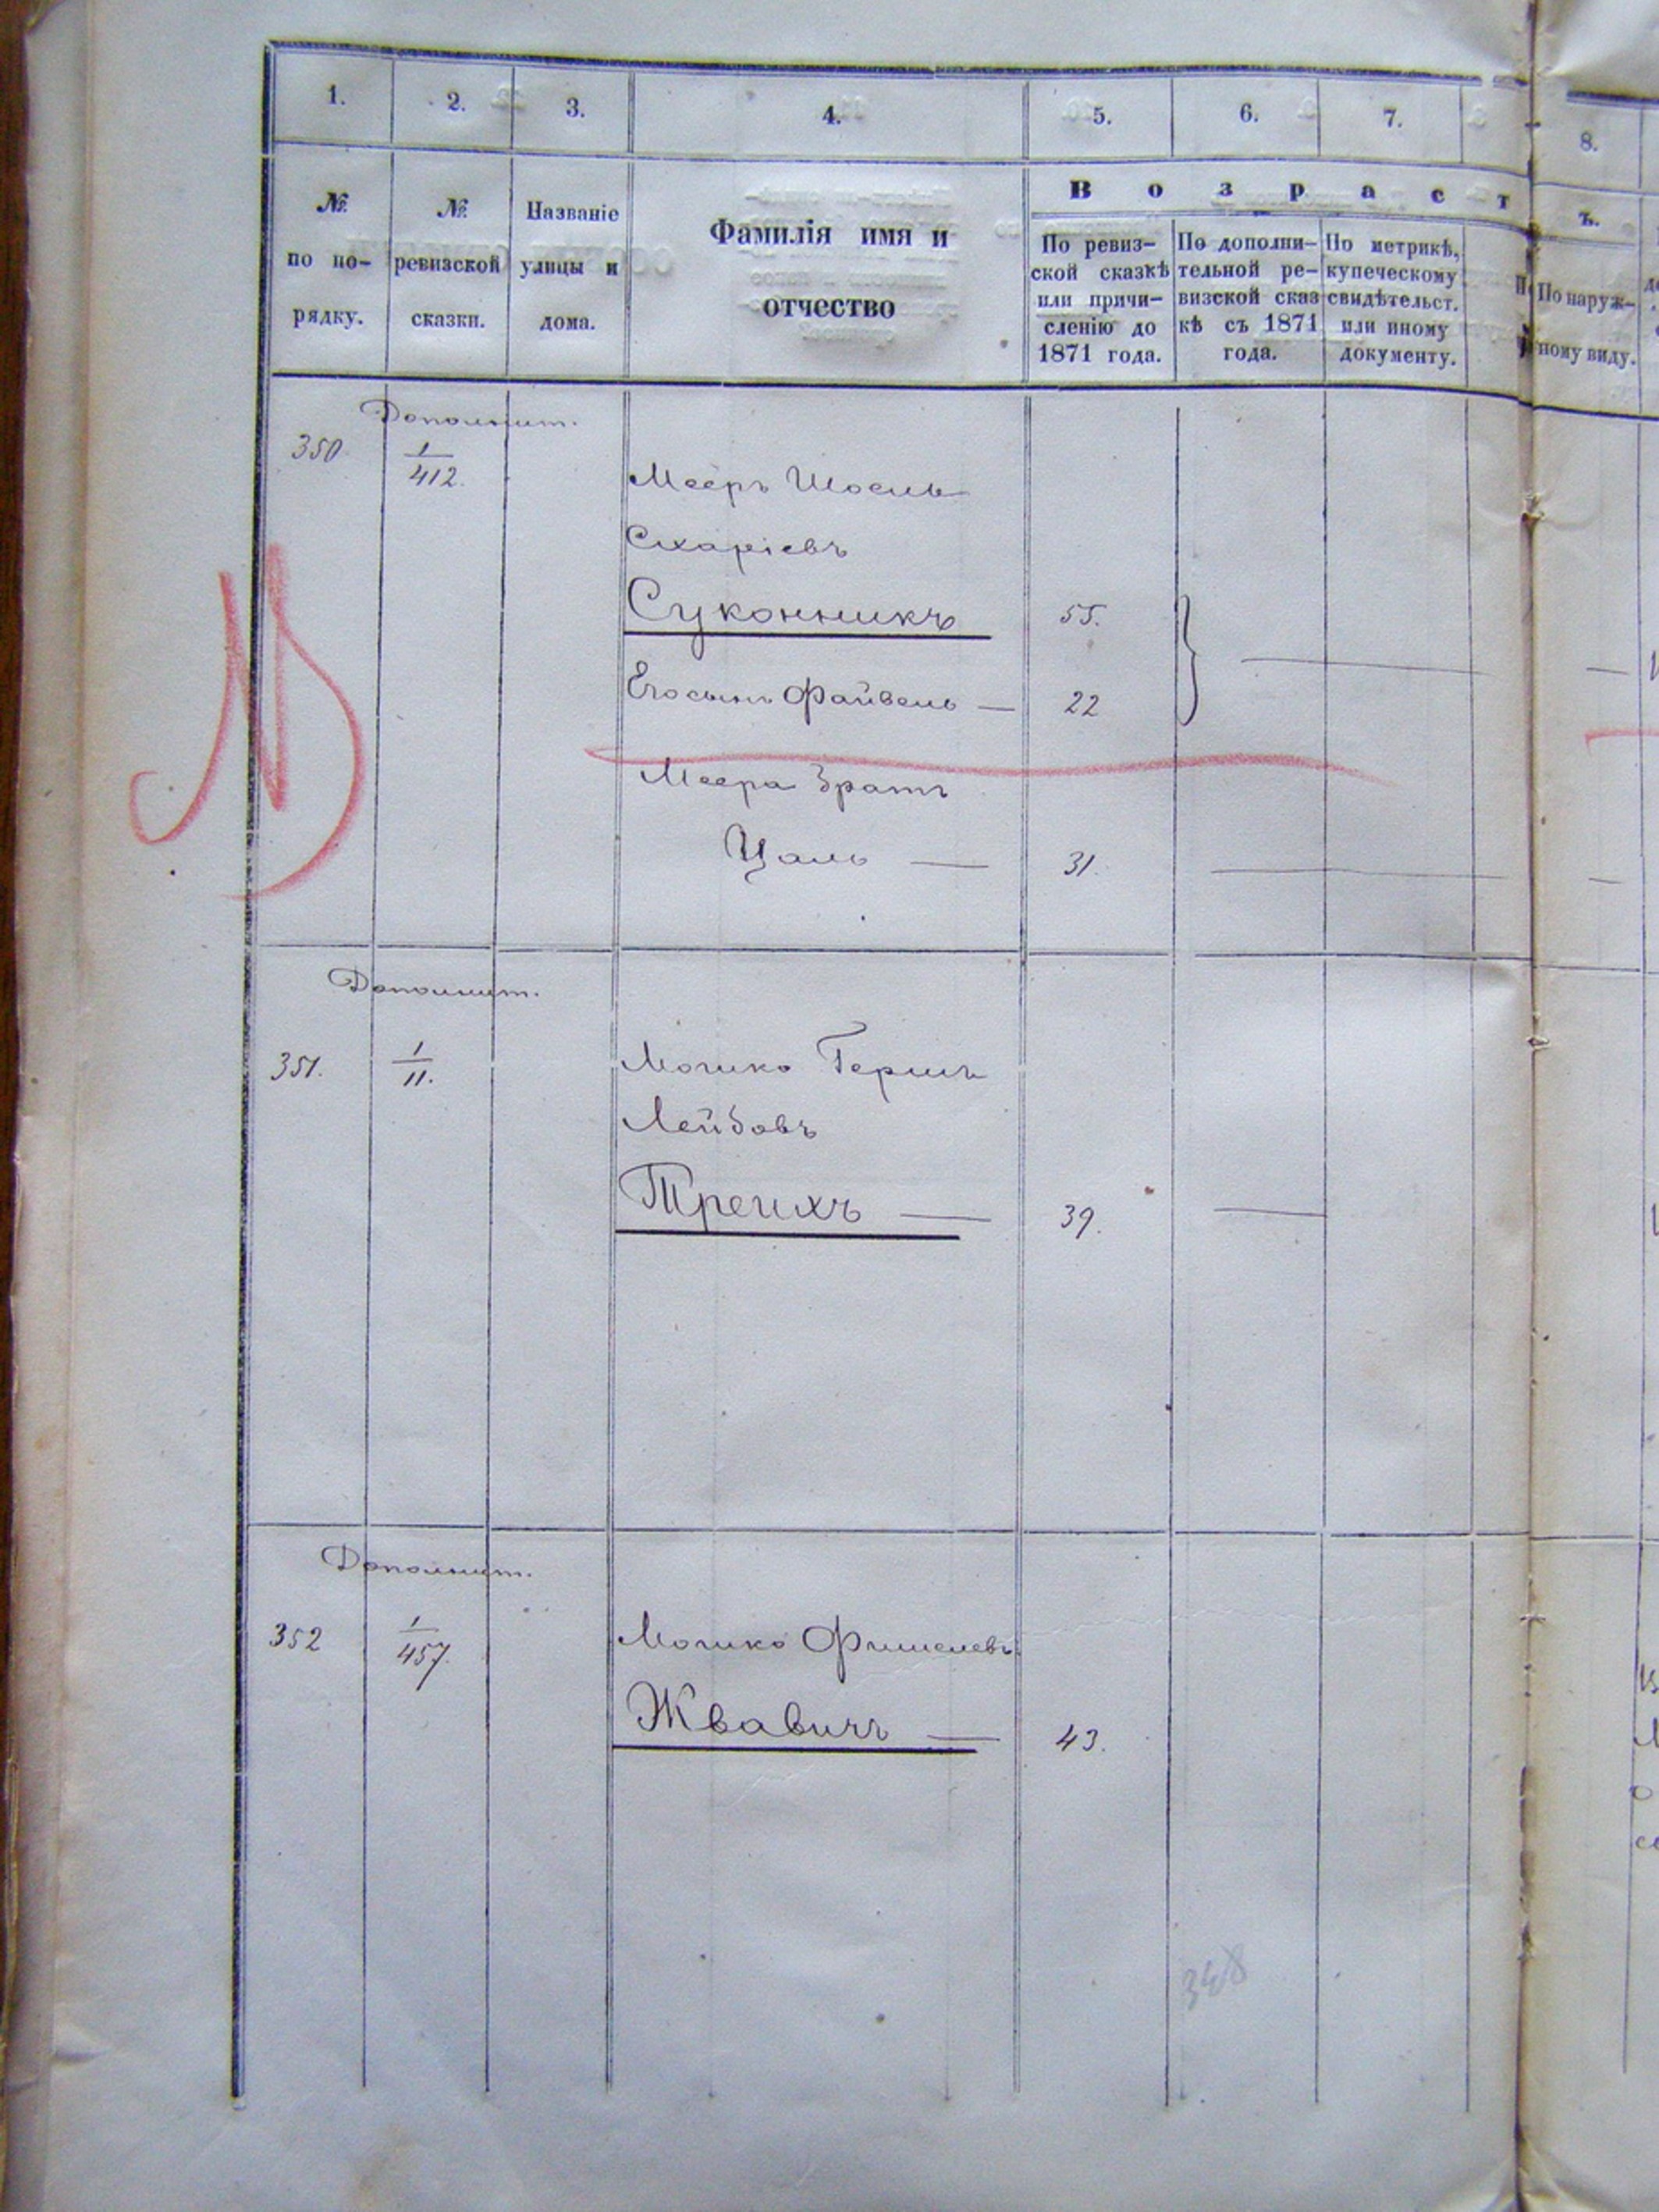 1. 2. 3. 4. 5. 6. 7. 8.
№ по по-рядку.
№ ревизской сказки.
Названіе улицы и дома.
Фамилія имя и отчество
В о з р а с т ъ.
По ревиз-ской сказкѣ или причи-сленію до 1871 года.
По дополни-тельной ре-визской сказ кѣ съ 1871 года.
По метрикѣ, купеческому свидѣтельст. или иному документу.
По наруж-ному виду.
Дополнит.
350. 1/412.
Мееръ Шоель
Схаріевъ
Суконникъ 55.
Его сынъ Файвель — 22
Меера братъ
Цаль — 31.
Дополнит.
351. 1/11.
Мошко Гершъ
Лейбовъ
Трейхъ — 39.
Дополнит.
352 1/457.
Мошко Фишелевъ
Жвавичъ — 43.
348